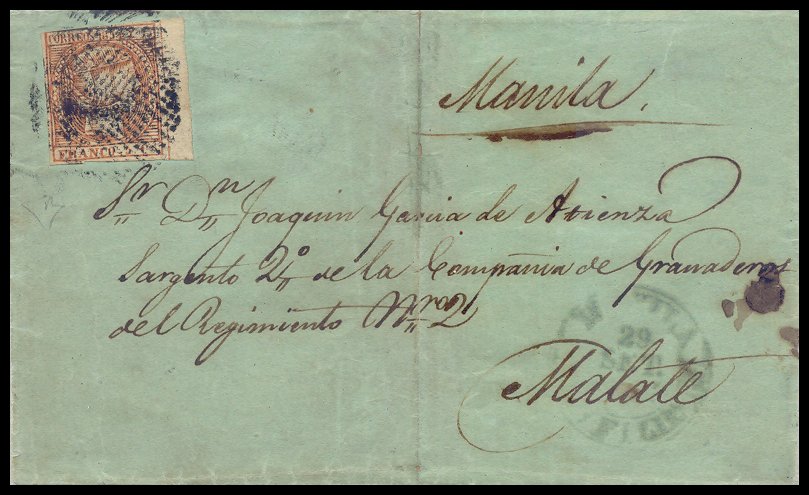 CORREOS
FRANCO
Manila.
Sr Dn Joaquin Garcia de Atienza
Sargento 2º de la Compañia de Granaderos
del Regimiento Nro 2
MANILA
29
Malate